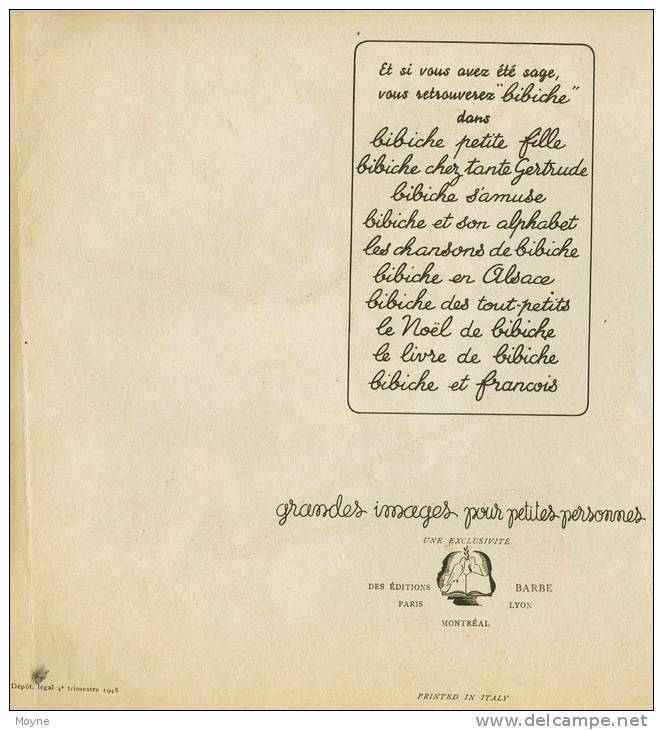 Et si vous avez été sage,
vous retrouverez "bibiche"
dans
bibiche petite fille
bibiche chez tante Gertrude
bibiche s'amuse
bibiche et son alphabet
les chansons de bibiche
bibiche en Alsace
bibiche des tout-petits
le Noël de bibiche
le livre de bibiche
bibiche et francois
grandes images pour petites personnes
UNE EXCLUSIVITÉ
DES ÉDITIONS BARBE
PARIS LYON
MONTRÉAL
Dépôt. légal 4e trimestre 1948
PRINTED IN ITALY
Moyne
delcampe.net